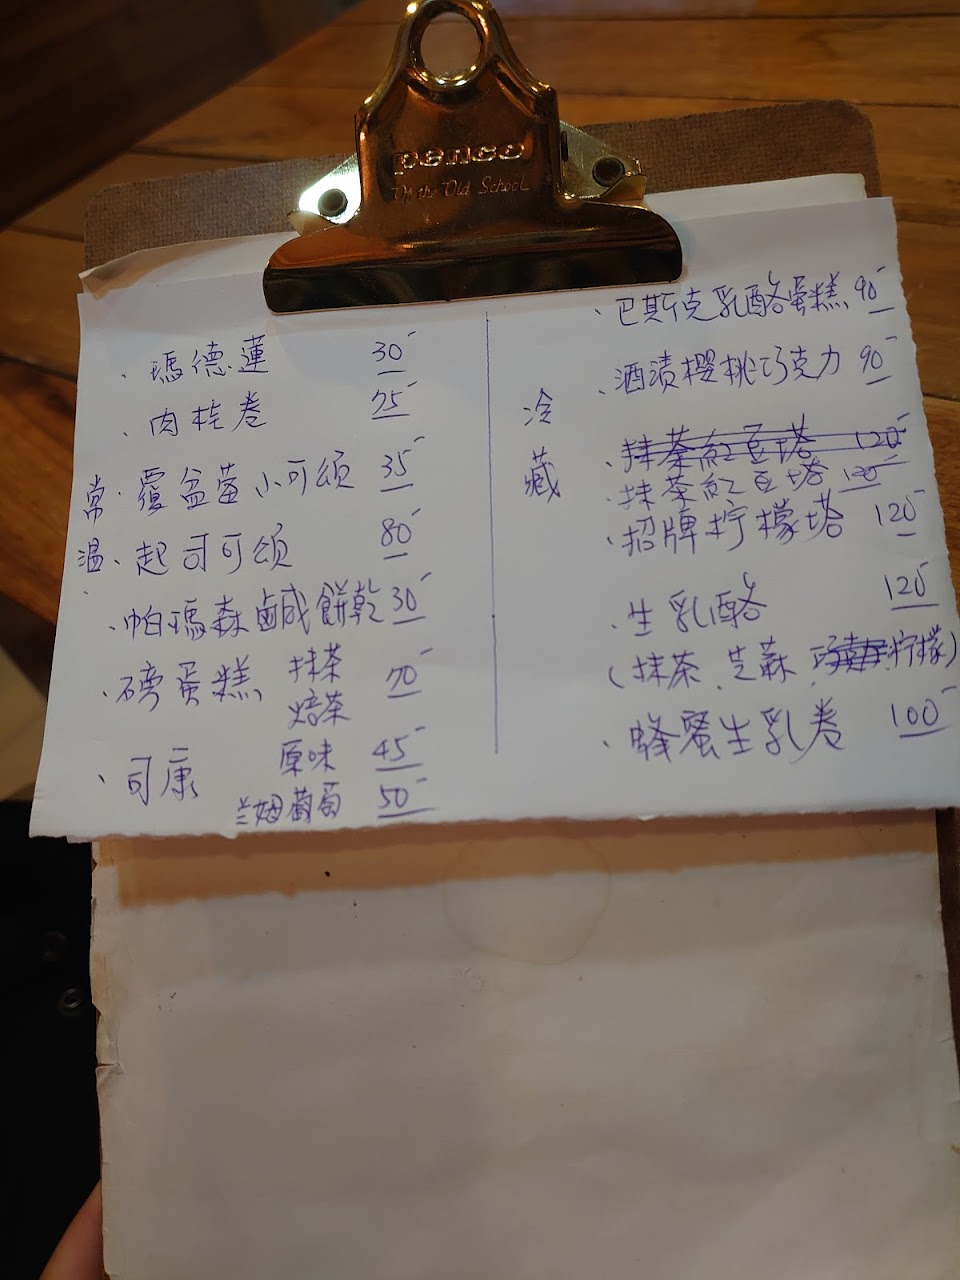 penco
On the Old School
・瑪德蓮 30
・肉桂卷 75
・覆盆莓小可頌 35
・起司可頌 80
・帕瑪森鹹餅乾 30
・磅蛋糕 抹茶 70
焙茶
・司康 原味 45
兰姆葡萄 50
常
温
・巴斯克乳酪蛋糕 90
・酒漬櫻桃巧克力 90
冷
藏
・抹茶紅豆塔 120
抹茶紅豆塔 120
・招牌柠檬塔 120
・生乳酪 120
(抹茶、芝麻、柠檬)
・蜂蜜生乳卷 100